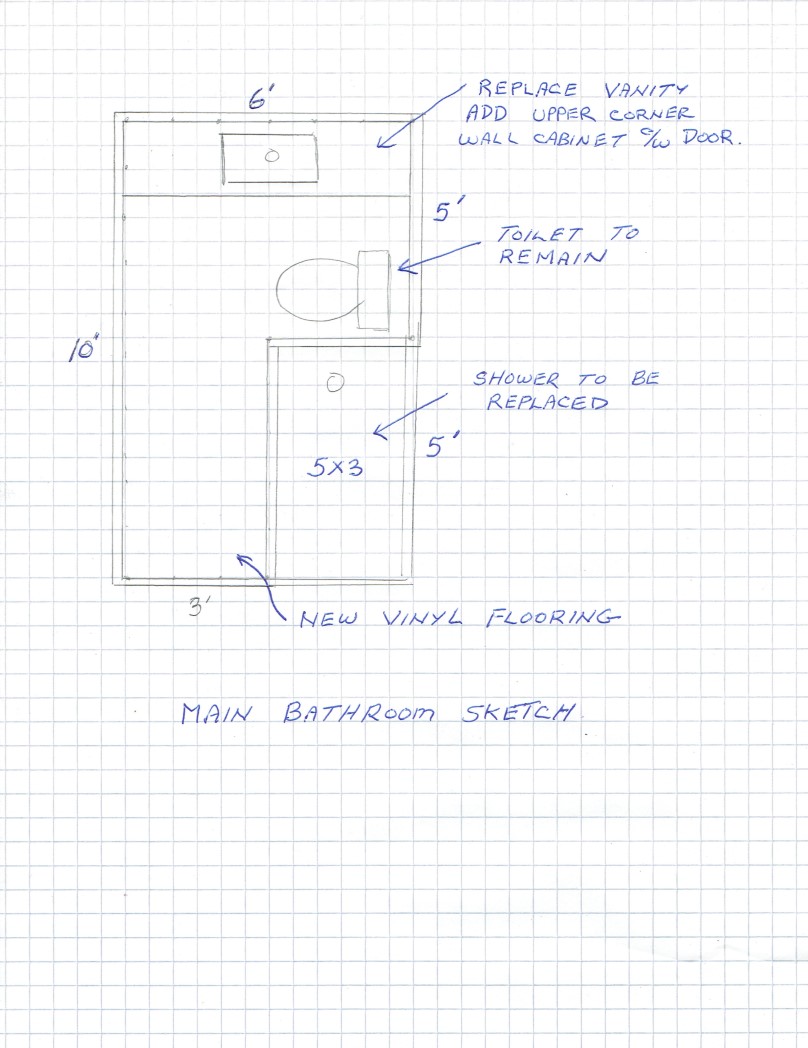 6'
REPLACE VANITY
ADD UPPER CORNER
WALL CABINET C/W DOOR.
5'
TOILET TO
REMAIN
10"
SHOWER TO BE
REPLACED
5'
5X3
3'
NEW VINYL FLOORING
MAIN BATHROOM SKETCH